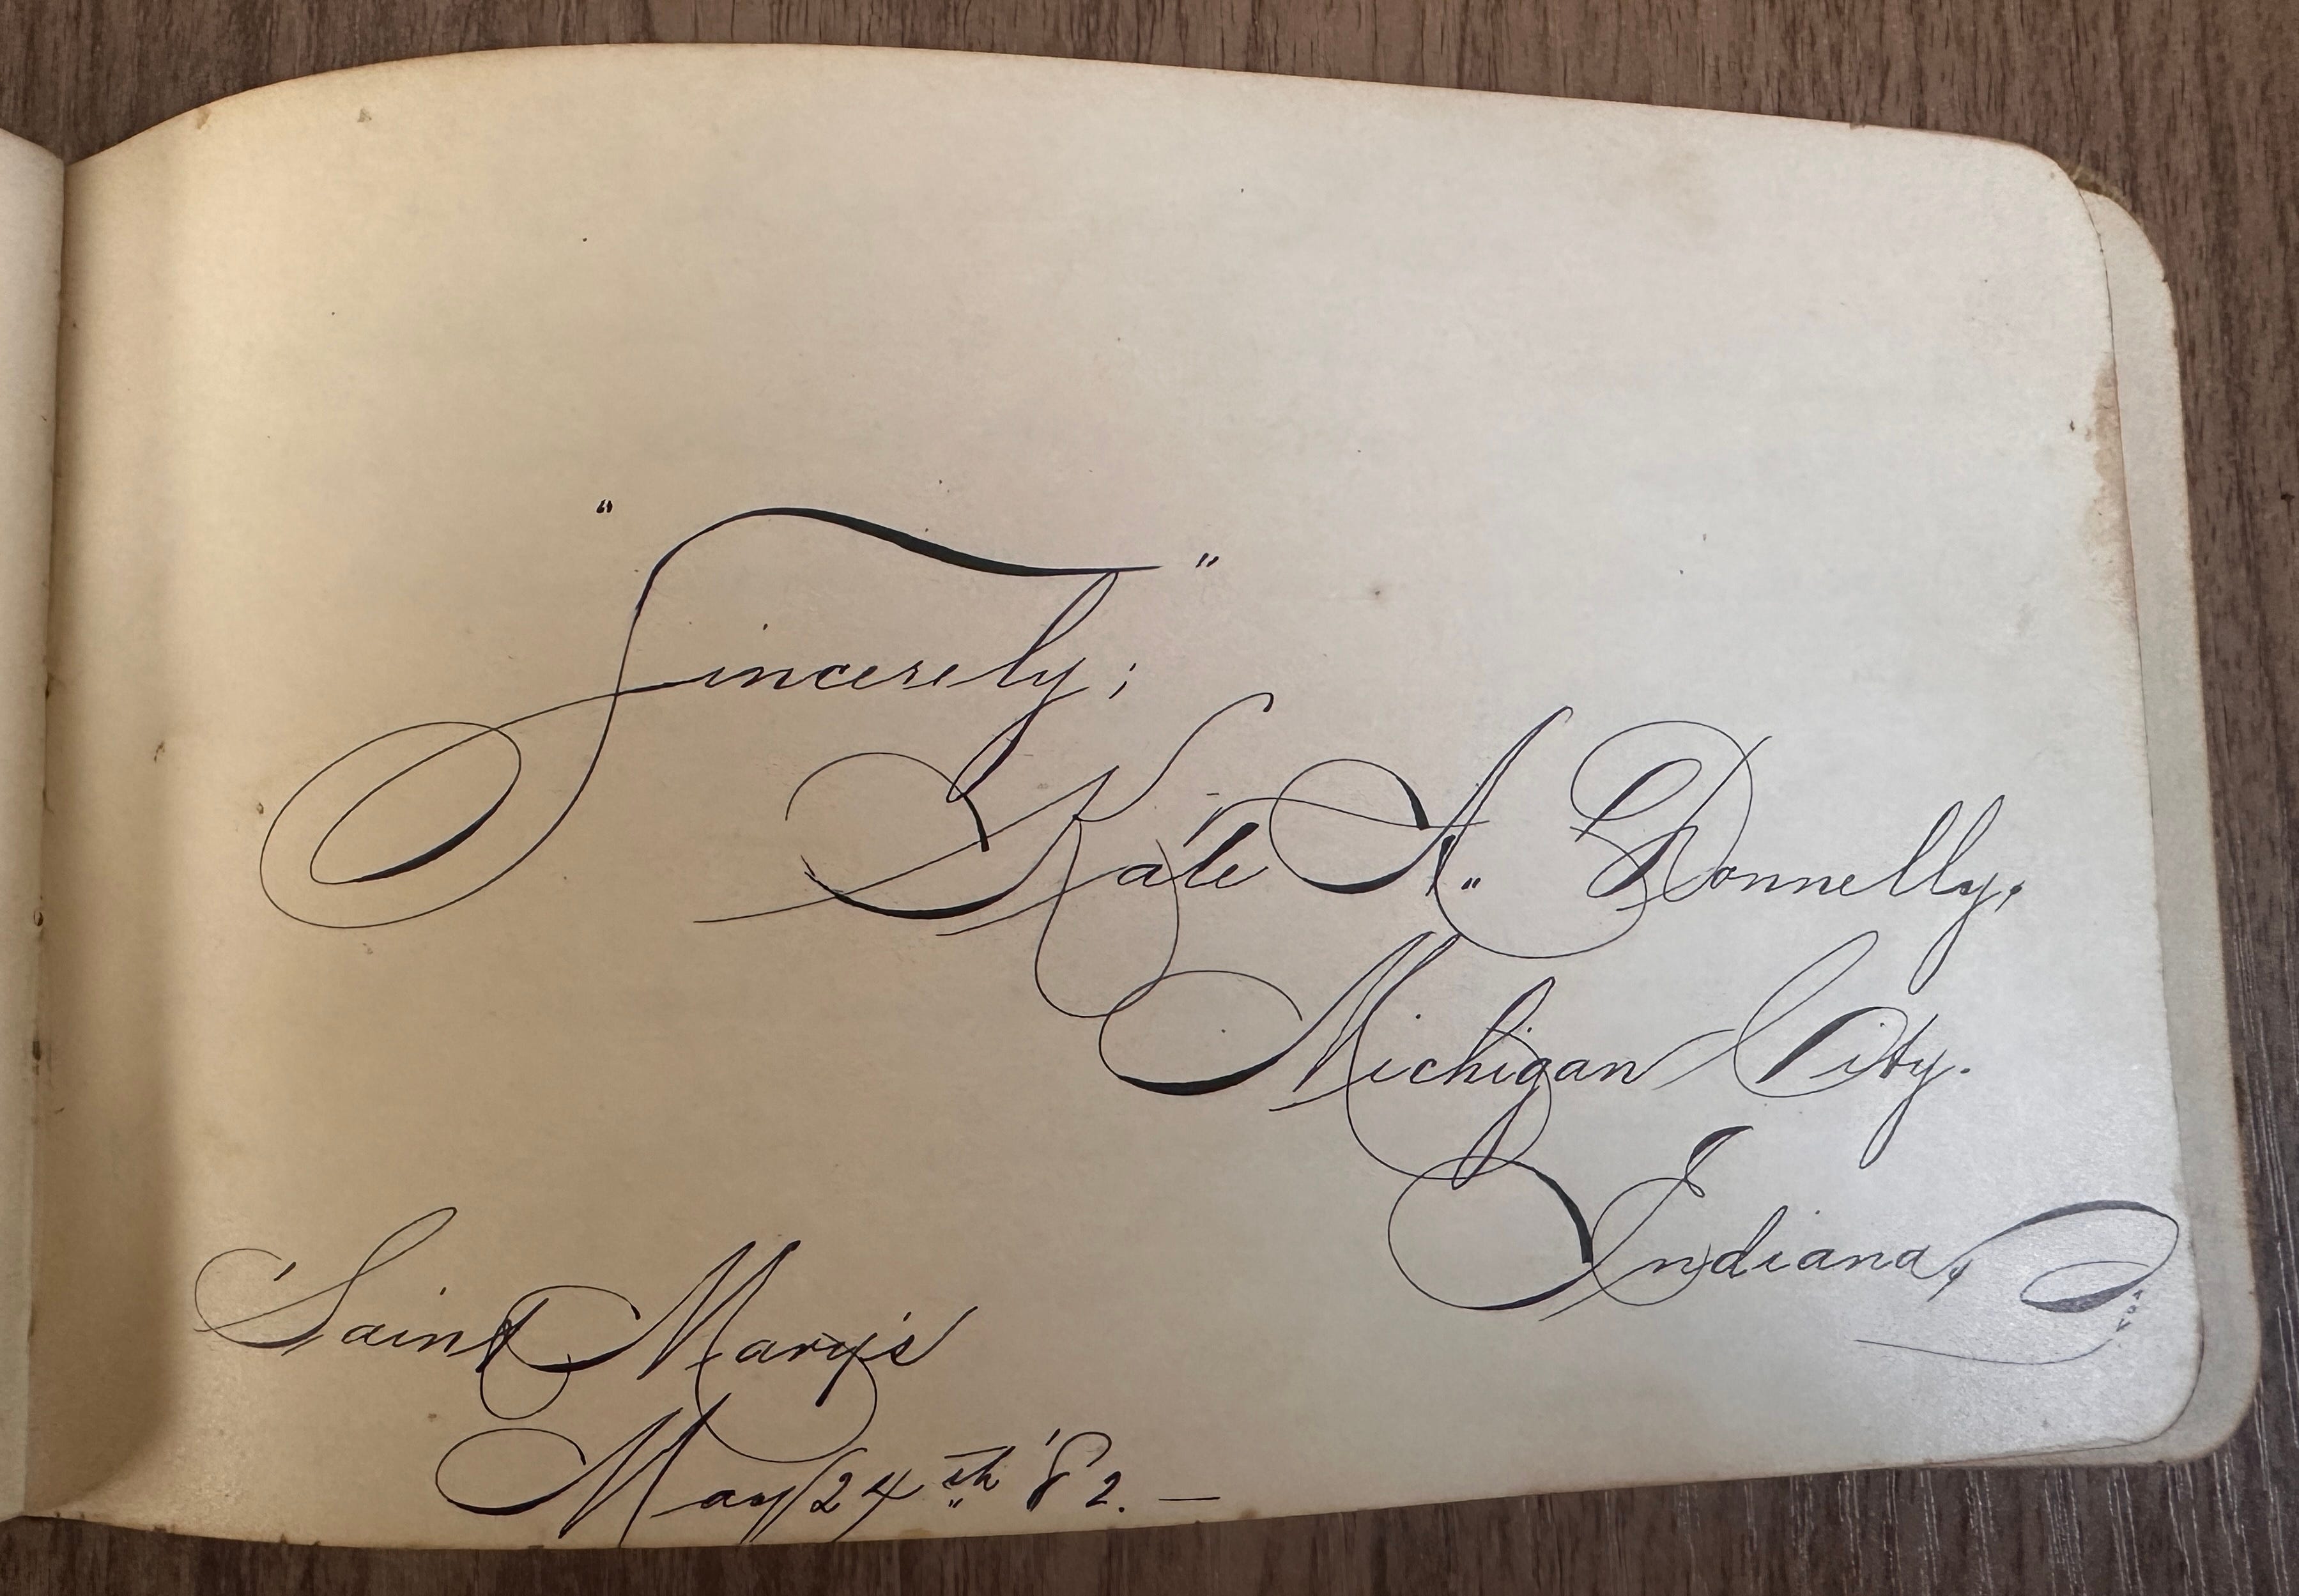 "Sincerely;"
Kate A. Donnelly,
Michigan City.
Indiana,
Saint Mary's
May 24th '82. —